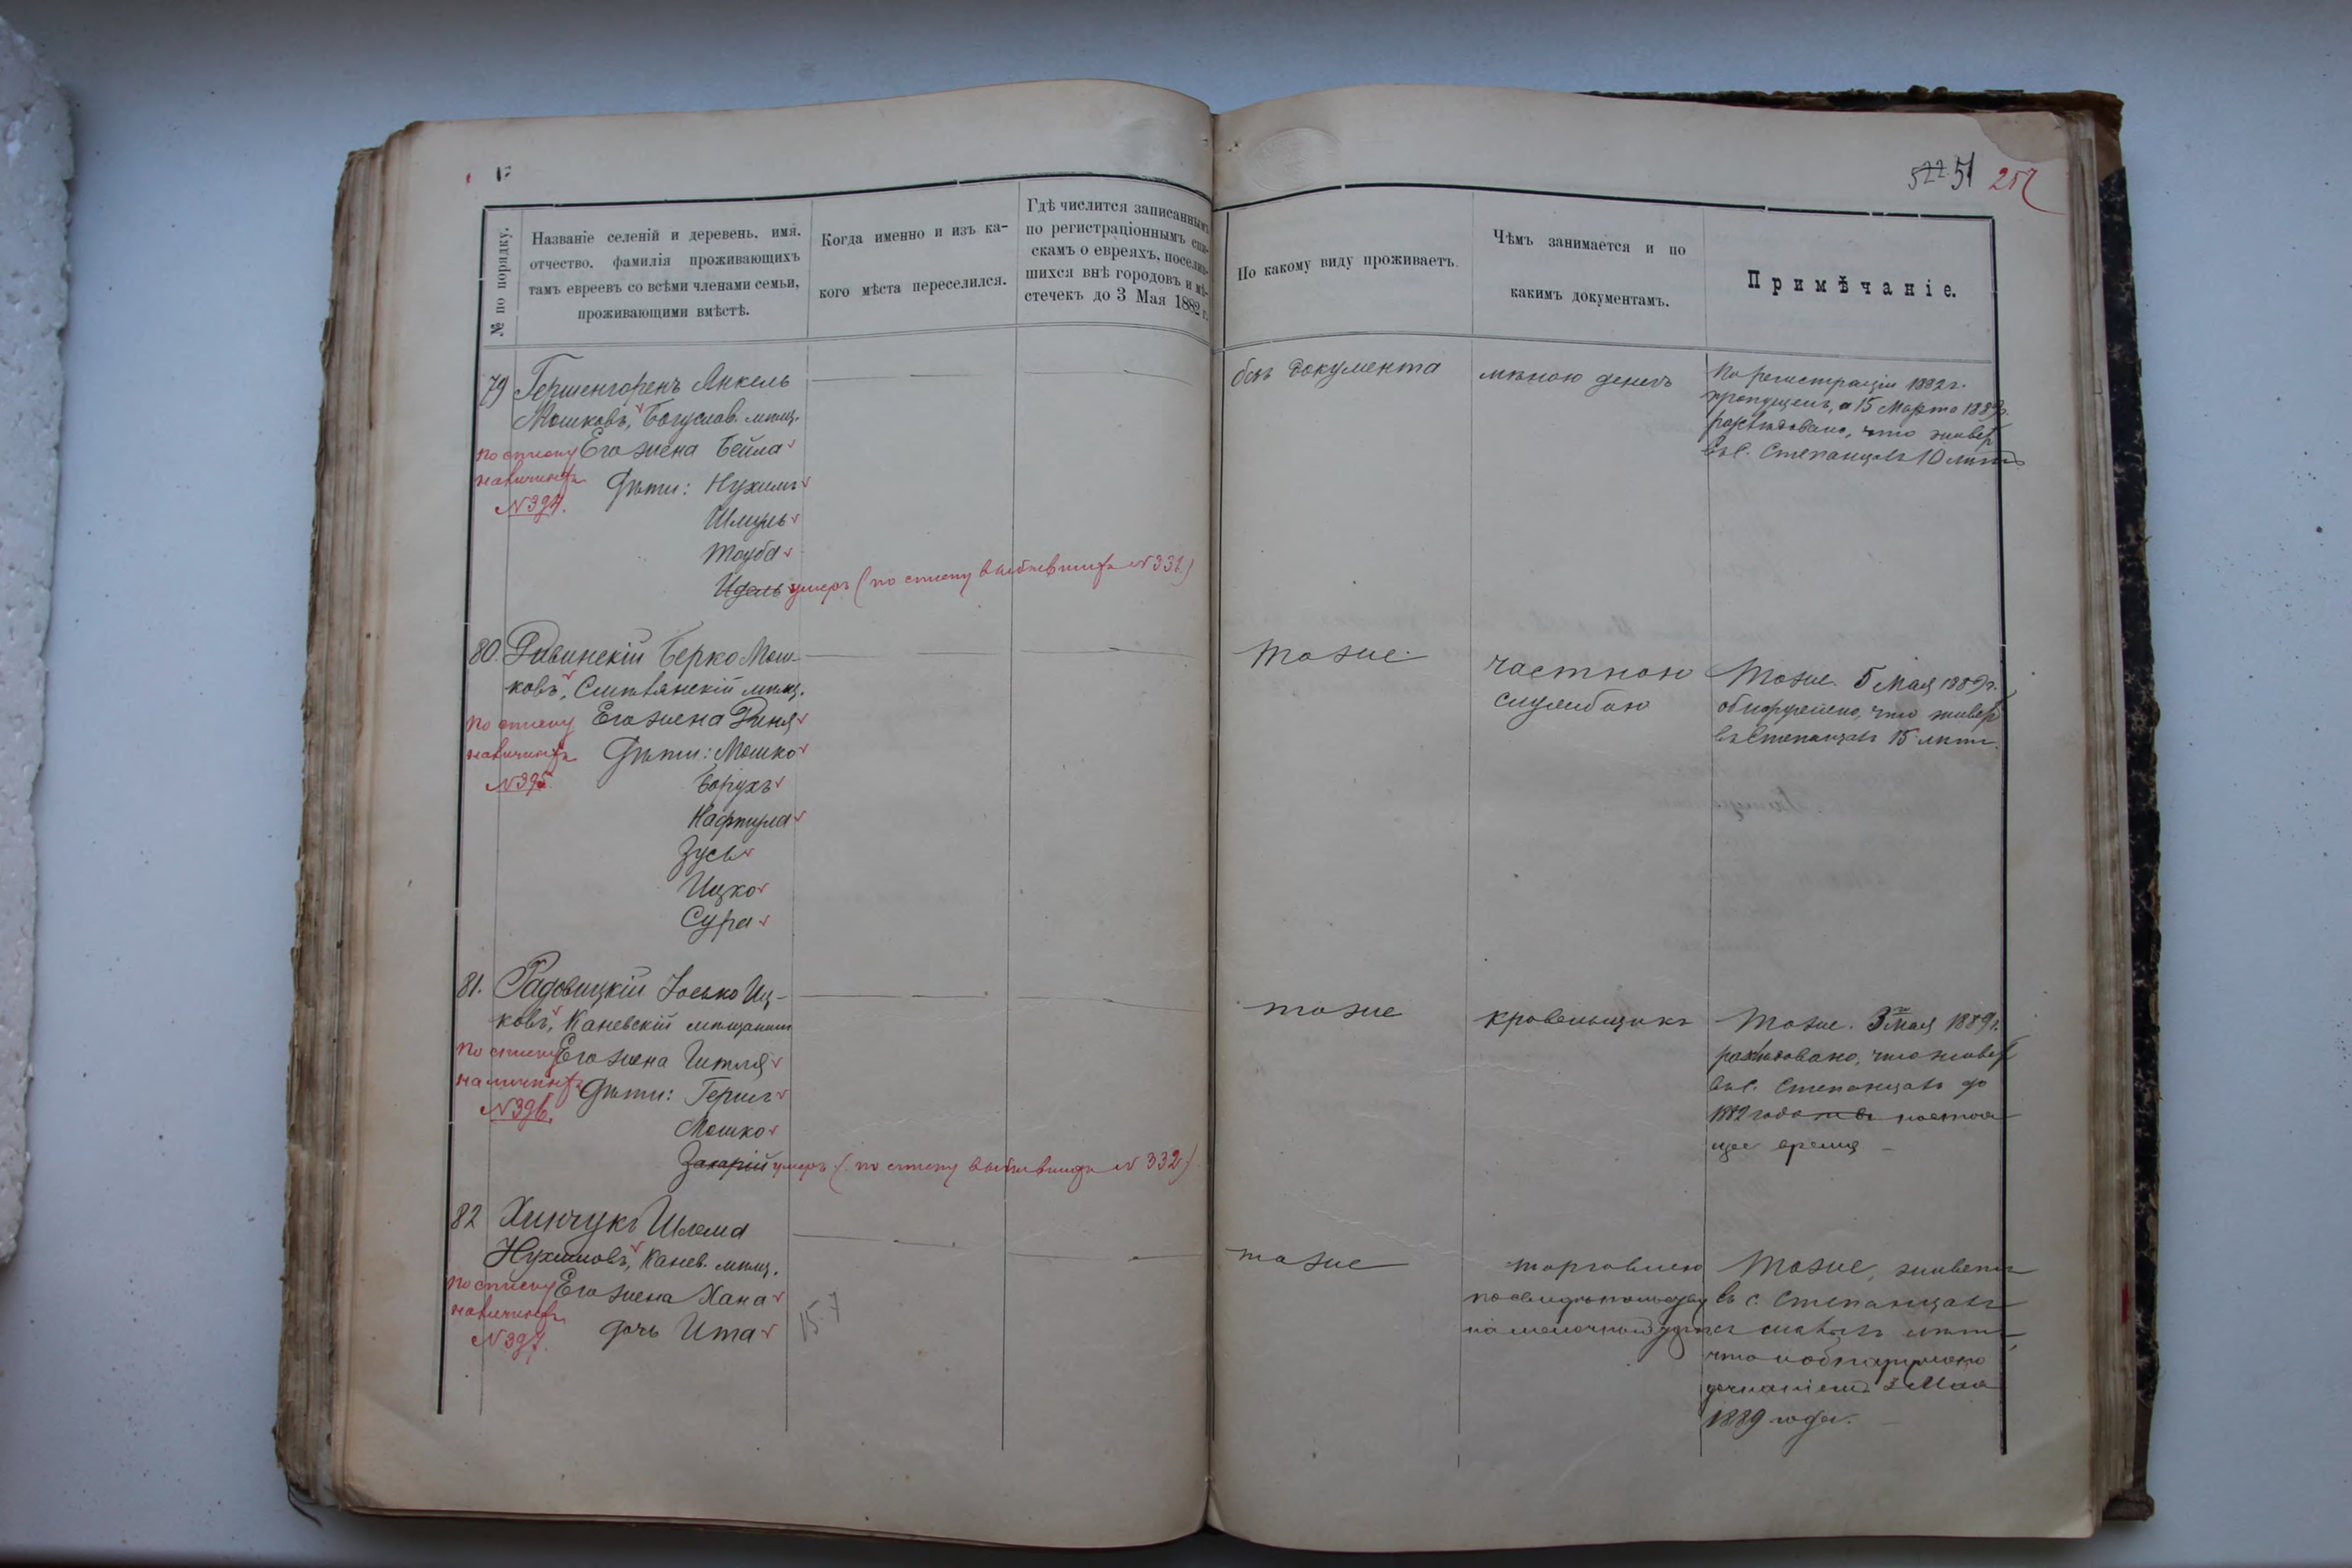 522 51 257
№ по порядку.
Названіе селеній и деревень, имя,
отчество, фамилія проживающихъ
тамъ евреевъ со всѣми членами семьи,
проживающими вмѣстѣ.
Когда именно и изъ ка-
кого мѣста переселился.
Гдѣ числится записаннымъ
по регистраціоннымъ спи-
скамъ о евреяхъ, поселив-
шихся внѣ городовъ и мѣ-
стечекъ до 3 Мая 1882 г.
По какому виду проживаетъ.
Чѣмъ занимается и по
какимъ документамъ.
Примѣчаніе.
79 Гершенгоренъ Янкель
Мошковъ, Богуслав. мѣщ.
Его жена Бейла
Дѣти: Нухимъ
Шмуль
Тауба
Идель умеръ (по списку выбывшихъ № 331)
по списку
наличныхъ
№ 394.
безъ документа
мѣною денегъ
По регистраціи 1882 г.
пропущенъ, а 15 Марта 1889 г.
разслѣдовано, что живетъ
въ с. Степанцахъ 10 лѣтъ
80. Ривинскій Берко Мош-
ковъ, Смѣлянскій мѣщ.
Его жена Диня
Дѣти: Мошко
Борухъ
Нафтула
Зусь
Ицко
Сура
по списку
наличныхъ
№ 395.
тоже
частною
службою
Тоже. 5 Мая 1889 г.
обнаружено, что живетъ
въ Степанцахъ 15 лѣтъ.
81. Радовицкій Іосько Иц-
ковъ, Каневскій мѣщанинъ
Его жена Гитля
Дѣти: Гершъ
Мошко
Захарій умеръ (по списку выбывшихъ № 332)
по списку
наличныхъ
№ 396.
тоже
кровельщикъ
Тоже. 3го Мая 1889 г.
разслѣдовано, что живетъ
въ с. Степанцахъ до
1882 года и въ настоя
щее время –
82 Хинчукъ Шлема
Нухимовъ, Канев. мѣщ.
Его жена Хана
дочь Ита
по списку
наличныхъ
№ 397.
15.7
тоже
торговлею
по свидѣтельству
на мелочной торгъ
Тоже, живетъ
въ с. Степанцахъ
лѣтъ,
что и обнаружено
дознаніемъ 3 Мая
1889 года. –